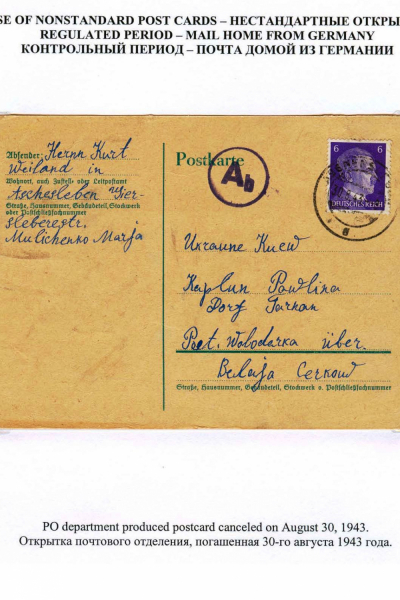 SE OF NONSTANDARD POST CARDS – НЕСТАНДАРТНЫЕ ОТКРЫ
REGULATED PERIOD – MAIL HOME FROM GERMANY
КОНТРОЛЬНЫЙ ПЕРИОД – ПОЧТА ДОМОЙ ИЗ ГЕРМАНИИ
Absender: Herrn Kurt
Weiland in
Wohnort, auch Zustell- oder Leitpostamt
Aschersleben Wier-
Straße, Hausnummer, Gebäudeteil, Stockwerk
oder Postschließfachnummer
sleberestr.
Mulichenko Marja
Postkarte
Ab
6 6
DEUTSCHES REICH
Ukraune Kuew
Kaplun Pawlina
Dorf Tarhan
Post. Wolodarka über.
Belaja Cerkow
Straße, Hausnummer, Gebäudeteil, Stockwerk o. Postschließfachnummer
PO department produced postcard canceled on August 30, 1943.
Открытка почтового отделения, погашенная 30-го августа 1943 года.